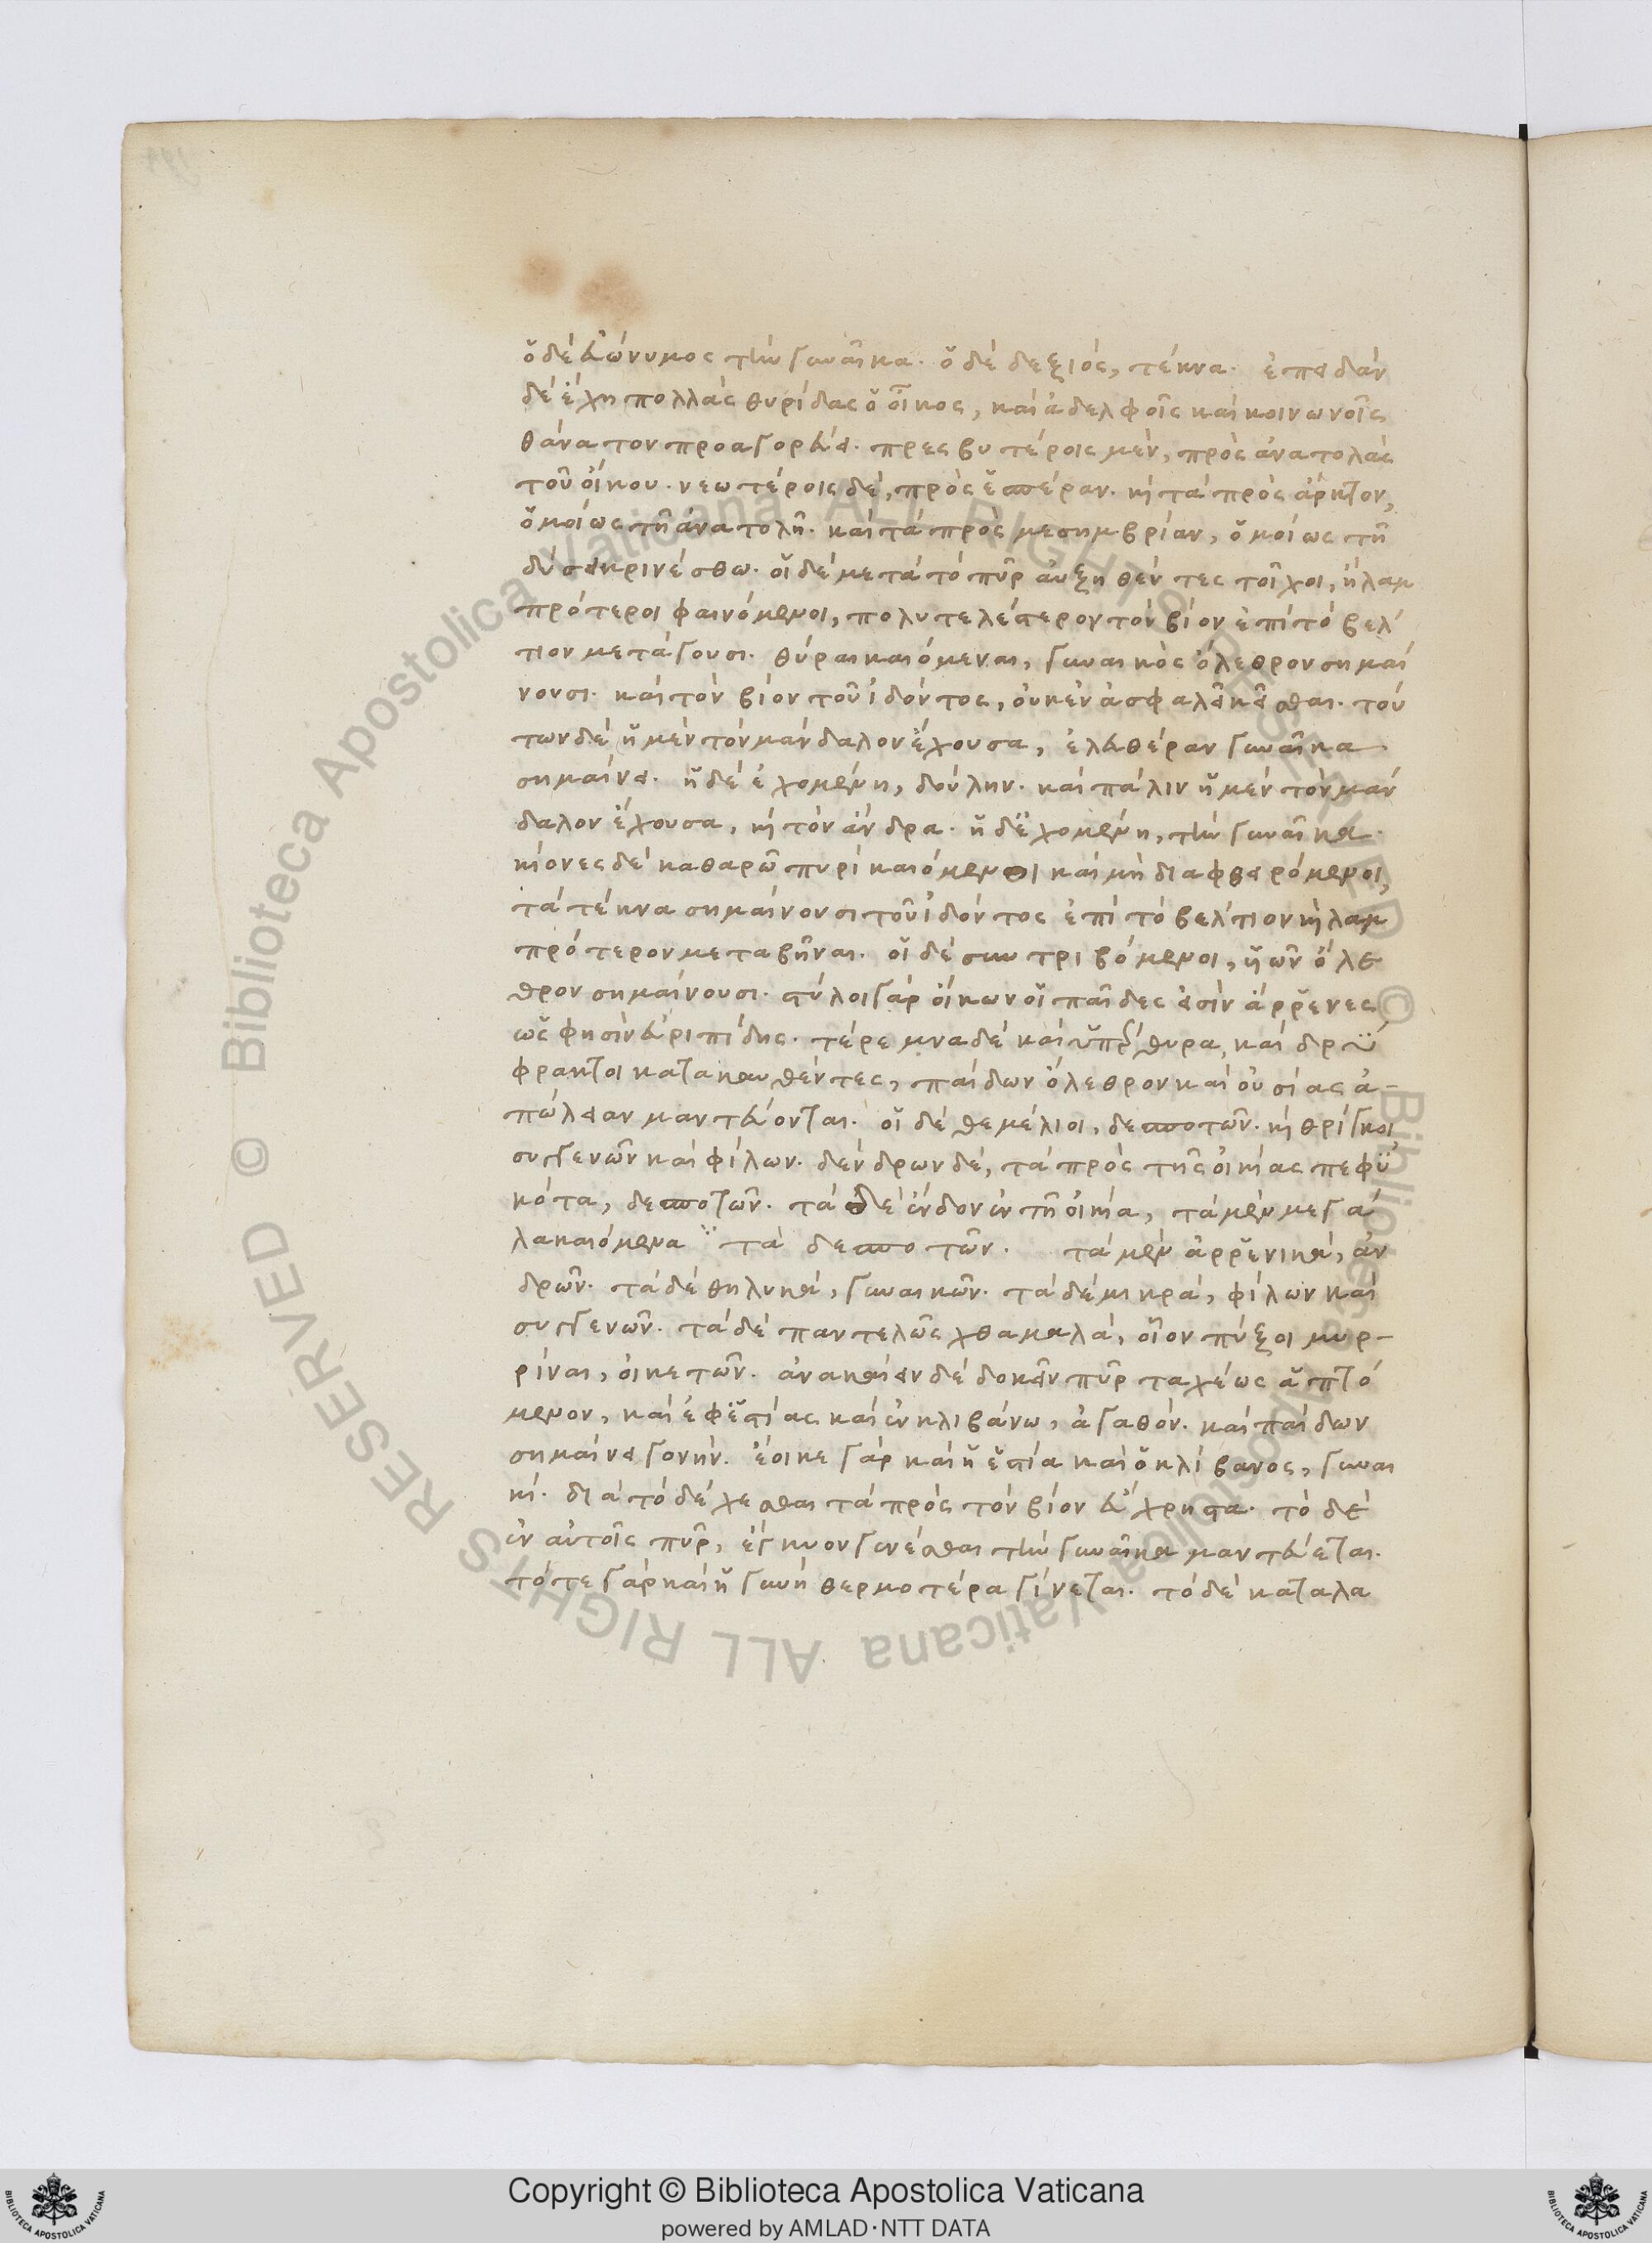 ὁ δὲ εὐώνυμος τὴν γυναῖκα. ὁ δὲ δεξιός, τέκνα. ἐπειδὰν
δὲ ἔχη πολλὰς θυρίδας ὁ οἶκος, καὶ ἀδελφοῖς καὶ κοινωνοῖς
θάνατον προαγορεύει. πρεσβυτέροις μὲν, πρὸς ἀνατολὰς
τοῦ οἴκου. νεωτέροις δὲ, πρὸς ἑσπέραν. καὶ τὰ πρὸς ἄρκτον,
ὁμοίως τῆ ἀνατολῆ. καὶ τὰ πρὸς μεσημβρίαν, ὁμοίως τῆ
δύσει κρινέσθω. οἱ δὲ μετὰ τὸ πῦρ αὐξηθέντες τοῖχοι, ἢ λαμ
πρότεροι φαινόμενοι, πολυτελέστερον τὸν βίον ἐπὶ τὸ βέλ
τιον μετάγουσι. θύραι καιόμεναι, γυναικὸς ὄλεθρον σημαί
νουσι. καὶ τὸν βίον τοῦ ἰδόντος, οὐκ ἐν ἀσφαλεῖ κεῖσθαι. τού
των δὲ ἡ μὲν τὸν μάνδαλον ἔχουσα, ἐλευθέραν γυναῖκα
σημαίνει. ἡ δὲ ἐχομένη, δούλην. καὶ πάλιν ἡ μὲν τὸν μάν
δαλον ἔχουσα, καὶ τὸν ἄνδρα. ἡ δὲ ἐχομένη, τὴν γυναῖκα.
κίονες δὲ καθαρῶ πυρὶ καιόμενοι καὶ μὴ διαφθειρόμενοι,
τὰ τέκνα σημαίνουσι τοῦ ἰδόντος ἐπὶ τὸ βέλτιον καὶ λαμ
πρότερον μεταβῆναι. οἱ δὲ συντριβόμενοι, υἱῶν ὄλε
θρον σημαίνουσι. στύλοι γὰρ οἴκων οἱ παῖδες εἰσὶν ἄρρενες
ὥς φησὶν εὐριπίδης. τέρεμνα δὲ καὶ ὑπέρθυρα, καὶ δρύ
φρακτοι κατακαυθέντες, παίδων ὄλεθρον καὶ οὐσίας ἀ-
πώλειαν μαντεύονται. οἱ δὲ θεμέλιοι, δεσποτῶν. καὶ θριγκοὶ
συγγενῶν καὶ φίλων. δένδρων δὲ, τὰ πρὸς τῆς οἰκίας πεφυ
κότα, δεσποτῶν. τὰ δὲ ἔνδον ἐν τῆ οἰκία, τὰ μὲν μεγά
λα καιόμενα τὰ δεσποτῶν. τὰ μὲν ἀρρενικά, ἀν
δρῶν. τὰ δὲ θηλυκά, γυναικῶν. τὰ δὲ μικρά, φίλων καὶ
συγγενῶν. τὰ δὲ παντελῶς χθαμαλά, οἷον πύξοι μυρ-
ρίναι, οἰκετῶν. ἀνακαίειν δὲ δοκεῖν πῦρ ταχέως ἁπτό
μενον, καὶ ἐφ ἑστίας καὶ ἐν κλιβάνω, ἀγαθόν. καὶ παίδων
σημαίνει γονήν. ἔοικε γὰρ καὶ ἡ ἑστία καὶ ὁ κλίβανος, γυναι
κί. διὰ τὸ δέχεσθαι τὰ πρὸς τὸν βίον εὔχρηστα. τὸ δὲ
ἐν αὐτοῖς πῦρ, ἔγκυον γενέσθαι τὴν γυναῖκα μαντεύεται.
τότε γὰρ καὶ ἡ γυνὴ θερμοτέρα γίνεται. τὸ δὲ καταλα
Copyright © Biblioteca Apostolica Vaticana
powered by AMLAD·NTT DATA
© Biblioteca Apostolica Vaticana ALL RIGHTS RESERVED © Biblioteca Apostolica Vaticana ALL RIGHTS RESERVED
BIBLIOTECA APOSTOLICA VATICANA
BIBLIOTECA APOSTOLICA VATICANA